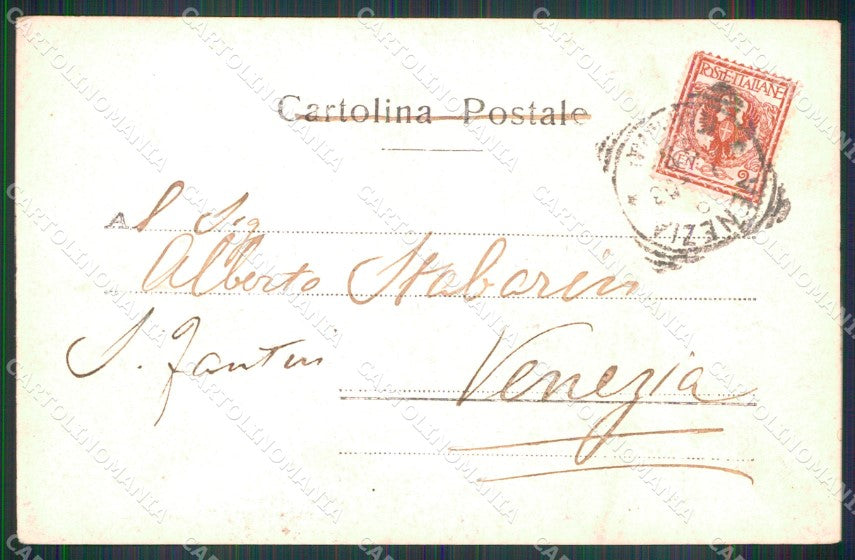 Cartolina Postale
POSTE ITALIANE
CEN. 2
VENEZIA
Al Sig
Alberto Stabarin
S. Fantin
Venezia
CARTOLINOMANIA